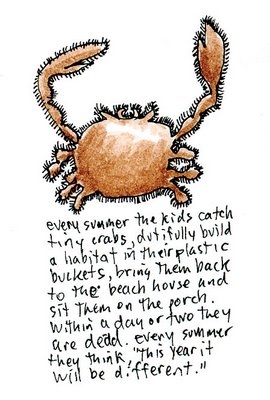 every summer the kids catch
tiny crabs, dutifully build
a habitat in their plastic
buckets, bring them back
to the beach house and
sit them on the porch.
within a day or two they
are dead. every summer
they think, "this year it
will be different."